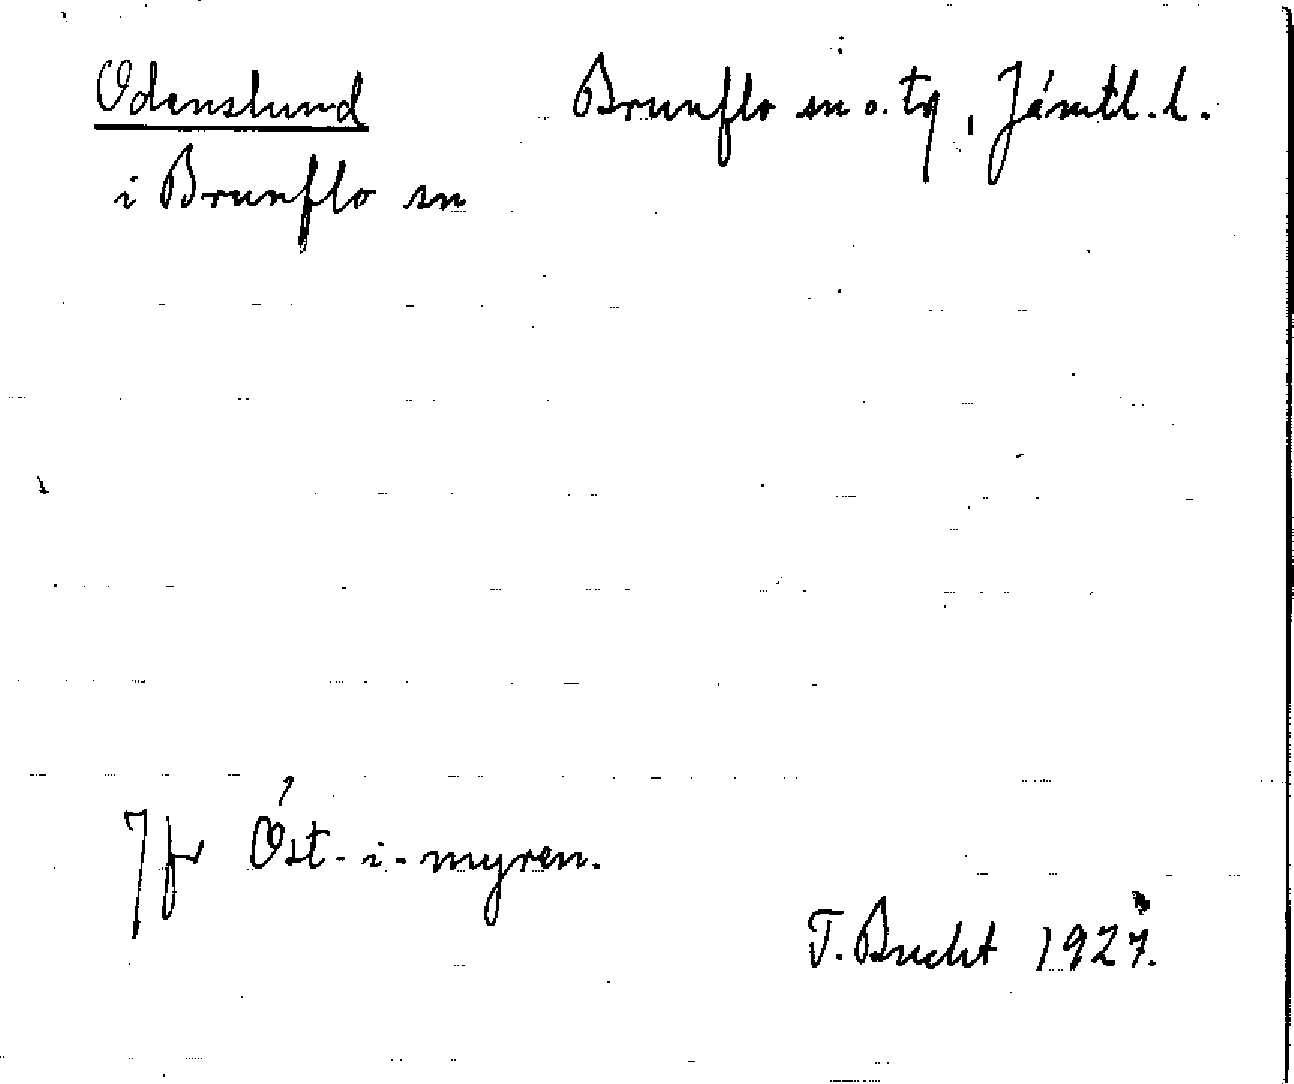 Odenslund Brunflo sn o. tg, Jämtl. l.
i Brunflo sn
Jfr Öst-i-myren.
T. Bucht 1927.